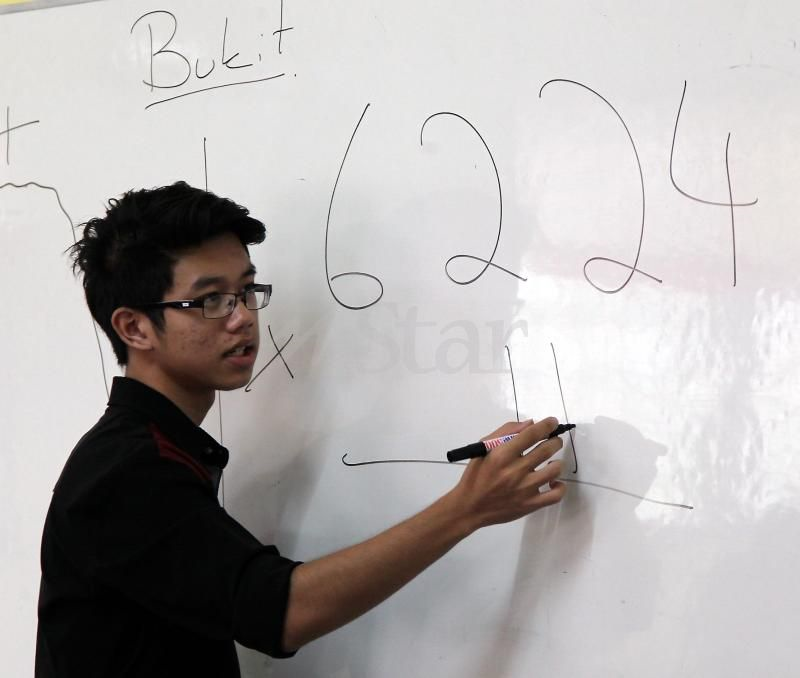 Bukit
6224
x 11
Star